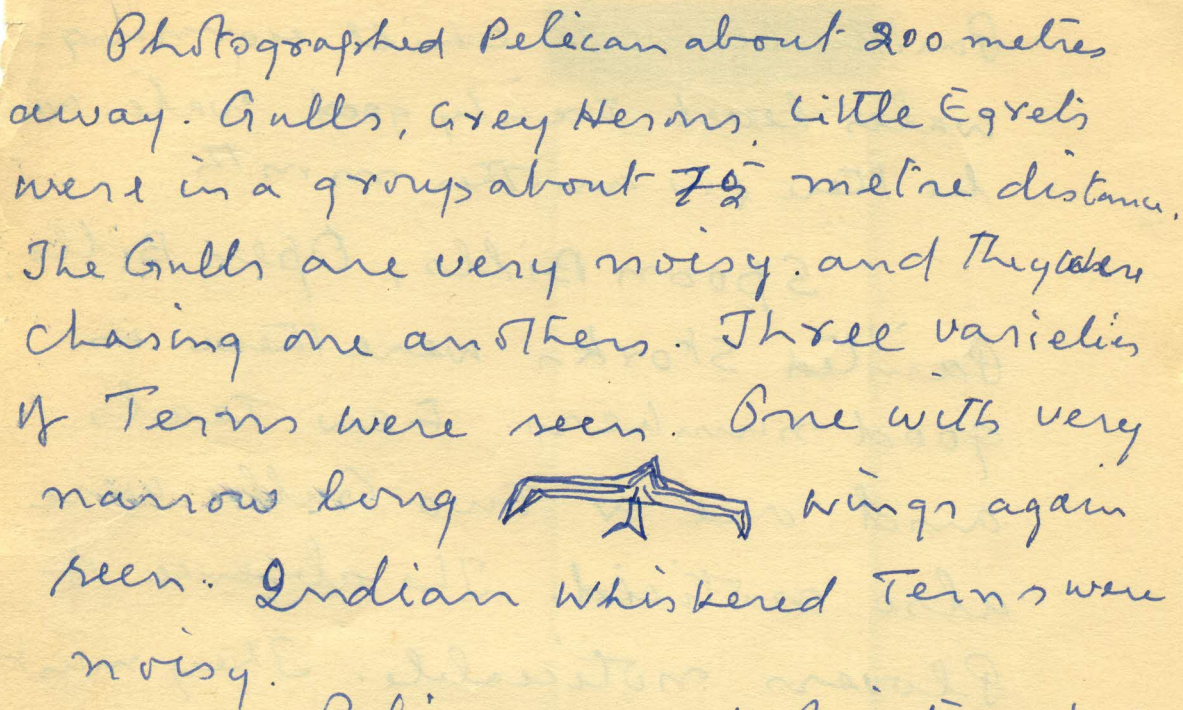 Photographed Pelican about 200 metres
away. Gulls, Grey Herons, Little Egrets
were in a group about 75 metre distance.
The Gulls are very noisy and they were
chasing one anothers. Three varieties
of Terns were seen. One with very
narrow long wings again
seen. Indian Whiskered Terns were
noisy.